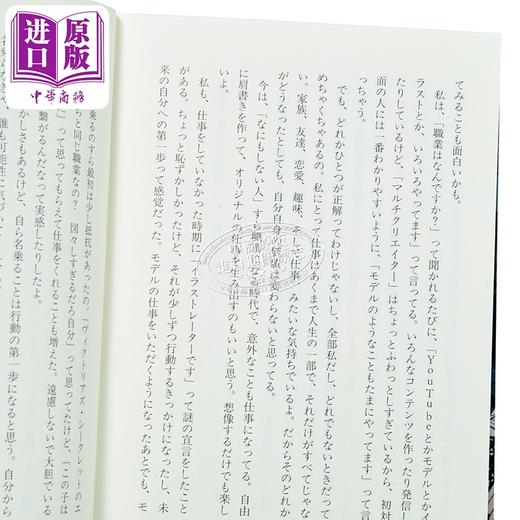 原版
进口
中華商務
てみることも面白いかも。
私は「職業はなんですか？」って聞かれるたびに、「YouTubeとかモデルとかイ
ラストとか、いろいろやってます」って言ってる。いろんなコンテンツを作ったり発信し
たりしているけど、「マルチクリエイター」はちょっとふわっとしすぎているから、初対
面の人には一番わかりやすいように、「モデルのようなこともたまにやってます」って言
っちゃう。
でも、どれかひとつが正解ってわけじゃないし、全部私だし、どれでもないときだって
めちゃくちゃあるの。私にとって仕事はあくまで人生の一部で、それだけがすべてじゃな
い。家族、友達、恋愛、趣味、そして仕事、みたいな気持ちでいるよ。だからそのどれか
がどうなったとしても、自分自身の価値は変わらないと思ってる。
今は、「なにもしない人」すら職業になる時代で、意外なことも仕事になってる。自由
に肩書きを作って、オリジナルの仕事を生み出すのもいいと思う。想像するだけでも楽し
いよ。
私も、仕事をしていなかった時期に「イラストレーターです」って謎の宣言をしたこと
がある。ちょっと恥ずかしかったけど、それが少しずつ行動するきっかけになったし、未
来の自分への第一歩って感覚だった。モデルの仕事をいただくようになったあとでも、モ
乗るのすら最初は少し抵抗があったの。「ヴィクトリアズ・シークレットのエ
ちと同じ職業なの？ 図々しすぎるだろ自分」って思ってたけど、「この子は
」って思ってもらえて仕事をくれることも増えた。遠慮しないで大胆でいる
繋がるんだなって実感したりしたよ。
かしさもあるけど、自ら名乗ることは行動の第一歩になると思う。自分から